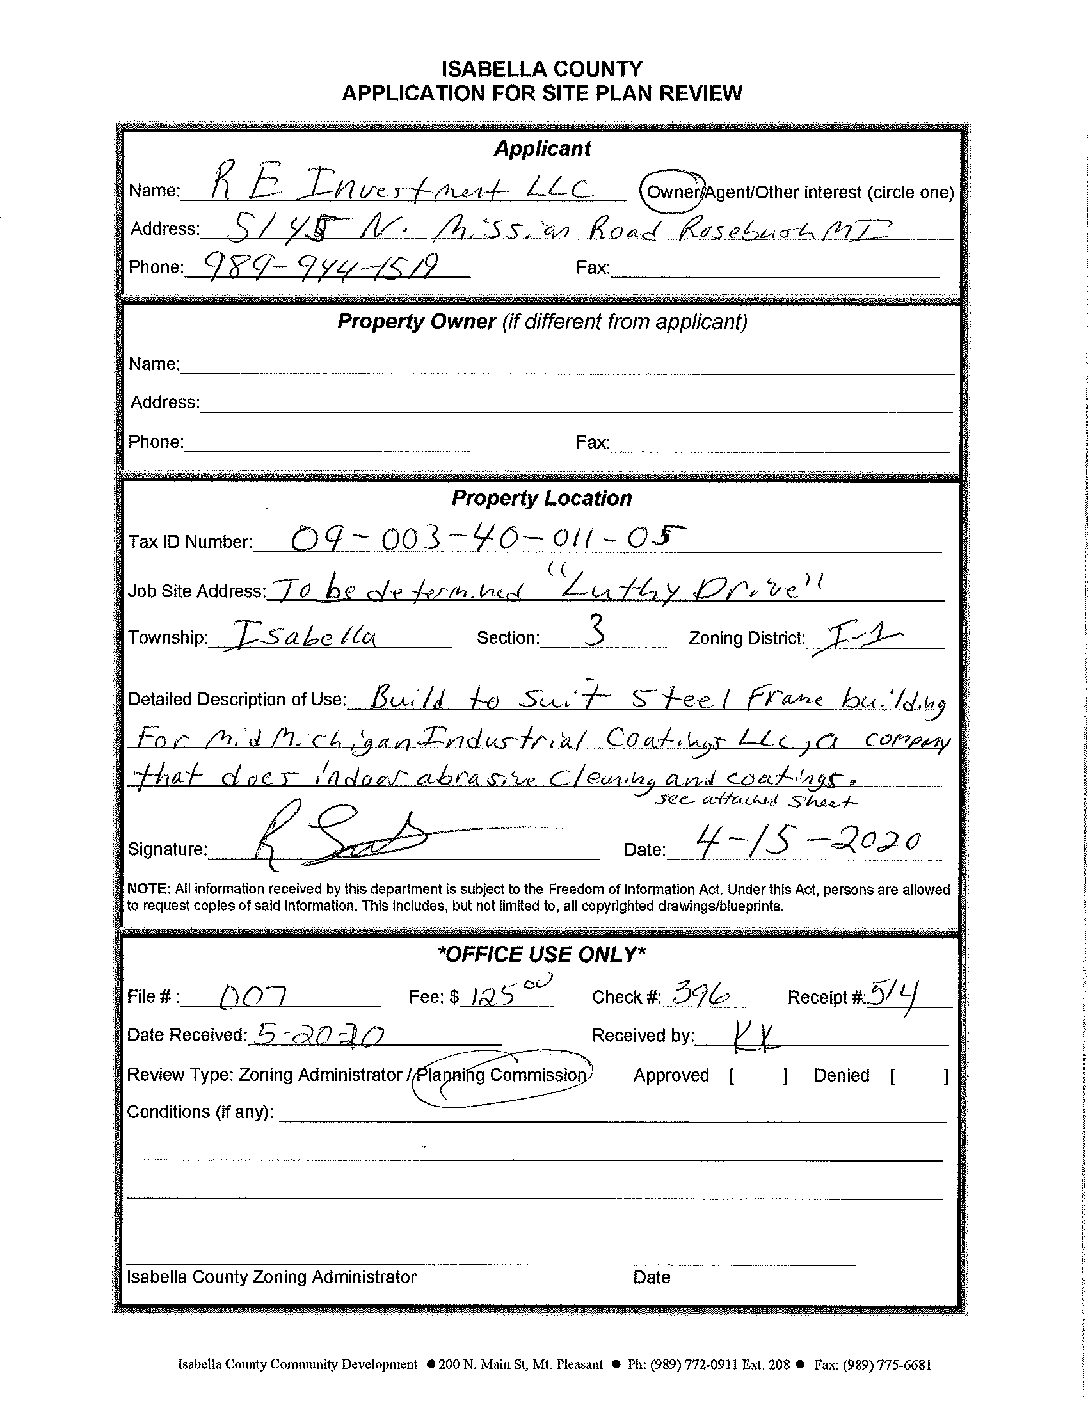 ISABELLA COUNTY
APPLICATION FOR SITE PLAN REVIEW
Applicant
Name: R E Investment LLC Owner/Agent/Other interest (circle one)
Address: 5145 N. Mission Road Rosebush MI
Phone: 989-944-1519 Fax:
Property Owner (if different from applicant)
Name:
Address:
Phone: Fax:
Property Location
Tax ID Number: 09-003-40-011-05
Job Site Address: To be determined "Luthy Drive"
Township: Isabella Section: 3 Zoning District: I-1
Detailed Description of Use: Build to Suit Steel Frame building
For Mid Michigan Industrial Coatings LLC, a company
that does indoor abrasive Cleaning and coatings.
see attached Sheet
Signature: Date: 4-15-2020
NOTE: All information received by this department is subject to the Freedom of Information Act. Under this Act, persons are allowed
to request copies of said information. This includes, but not limited to, all copyrighted drawings/blueprints.
*OFFICE USE ONLY*
File #: 007 Fee: $ 125 00 Check #: 396 Receipt #: 514
Date Received: 5-20-20 Received by: KK
Review Type: Zoning Administrator / Planning Commission Approved [ ] Denied [ ]
Conditions (if any):
Isabella County Zoning Administrator Date
Isabella County Community Development ● 200 N. Main St, Mt. Pleasant ● Ph: (989) 772-0911 Ext. 208 ● Fax: (989) 775-6681